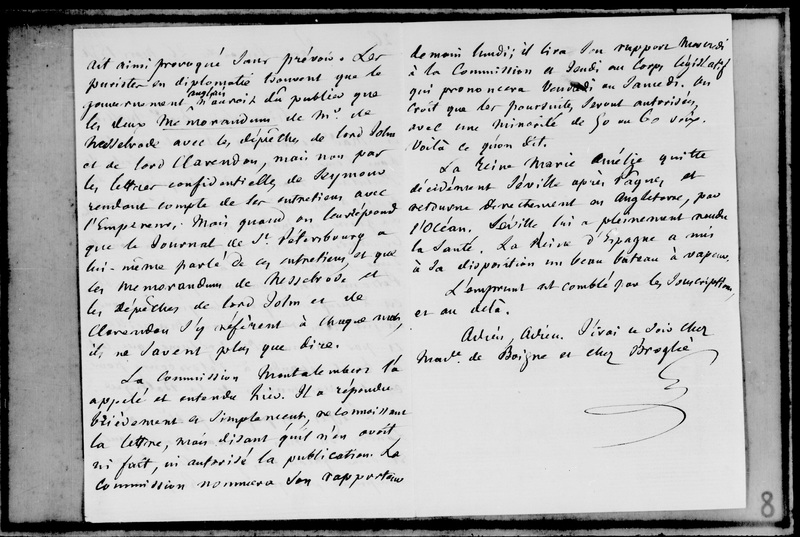 est ainsi provoqué sans prévoir. Les
puristes en diplomatie trouvent que le
gouvernement anglais n'auroit dû publier que
les deux Memorandum de Mr. de
Nesselrode avec les dépêches de lord John
et de lord Clarendon, mais non pas
les lettres confidentielles de Seymour
rendant compte de ses entretiens avec
l'Empereur; mais quand on leur répond
que le Journal de St Petersbourg a
lui-même parlé de ces entretiens, et que
les Memorandum de Nesselrode et
les dépêches de lord John et de
Clarendon s'y réfèrent à chaque mot,
ils ne savent plus que dire.
La Commission Montalembert l'a
appelé et entendu hier. Il a répondu
brièvement et simplement, reconnoissant
la lettre, mais disant qu'il n'en avoit
ni fait, ni autorisé la publication. La
Commission nommera son rapporteur
demain lundi; il lira son rapport Mercredi
à la Commission et Jeudi au Corps législatif
qui prononcera Vendredi ou Samedi. On
croit que les poursuites seront autorisées,
avec une minorité de 50 ou 60 voix.
Voilà ce qu'on dit.
La Reine Marie Amélie quitte
décidément Séville après Pâques et
retourne directement en Angleterre, par
l'Océan. Séville lui a pleinement rendu
la santé. La Reine d'Espagne a mis
à sa disposition un beau bateau à vapeur.
L'emprunt est comblé par les souscriptions,
et au delà.
Adieu, Adieu. J'irai ce soir chez
Made. de Boigne et chez Broglie
8